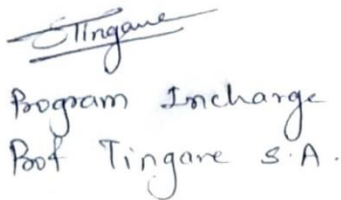 STingare
Program Incharge
Prof Tingare S.A.